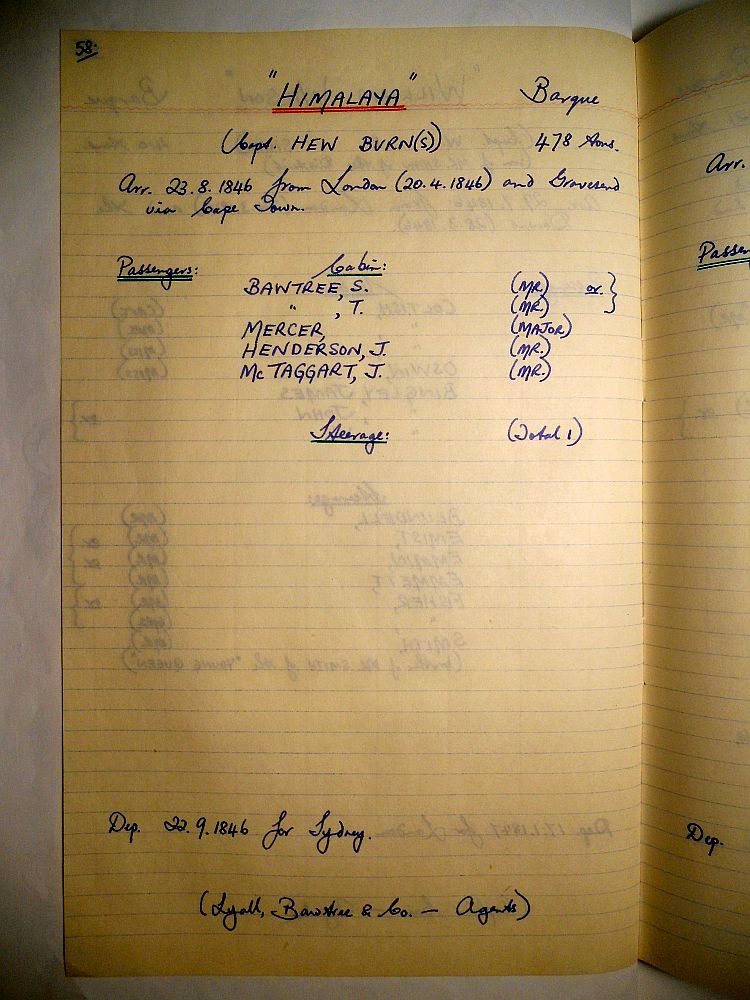 58.
"HIMALAYA" Barque
(Capt. HEW BURN(S)) 478 tons.
Arr. 23.8.1846 from London (20.4.1846) and Gravesend
via Cape Town.
Passengers: Cabin:
BAWTREE, S. (MR.) or. }
" , T. (MR.)
MERCER, (MAJOR)
HENDERSON, J. (MR.)
McTAGGART, J. (MR.)
Steerage: (Total 1)
Dep. 22.9.1846 for Sydney.
(Lyall, Bawtree & Co. — Agents)
Arr.
Passen
Dep.